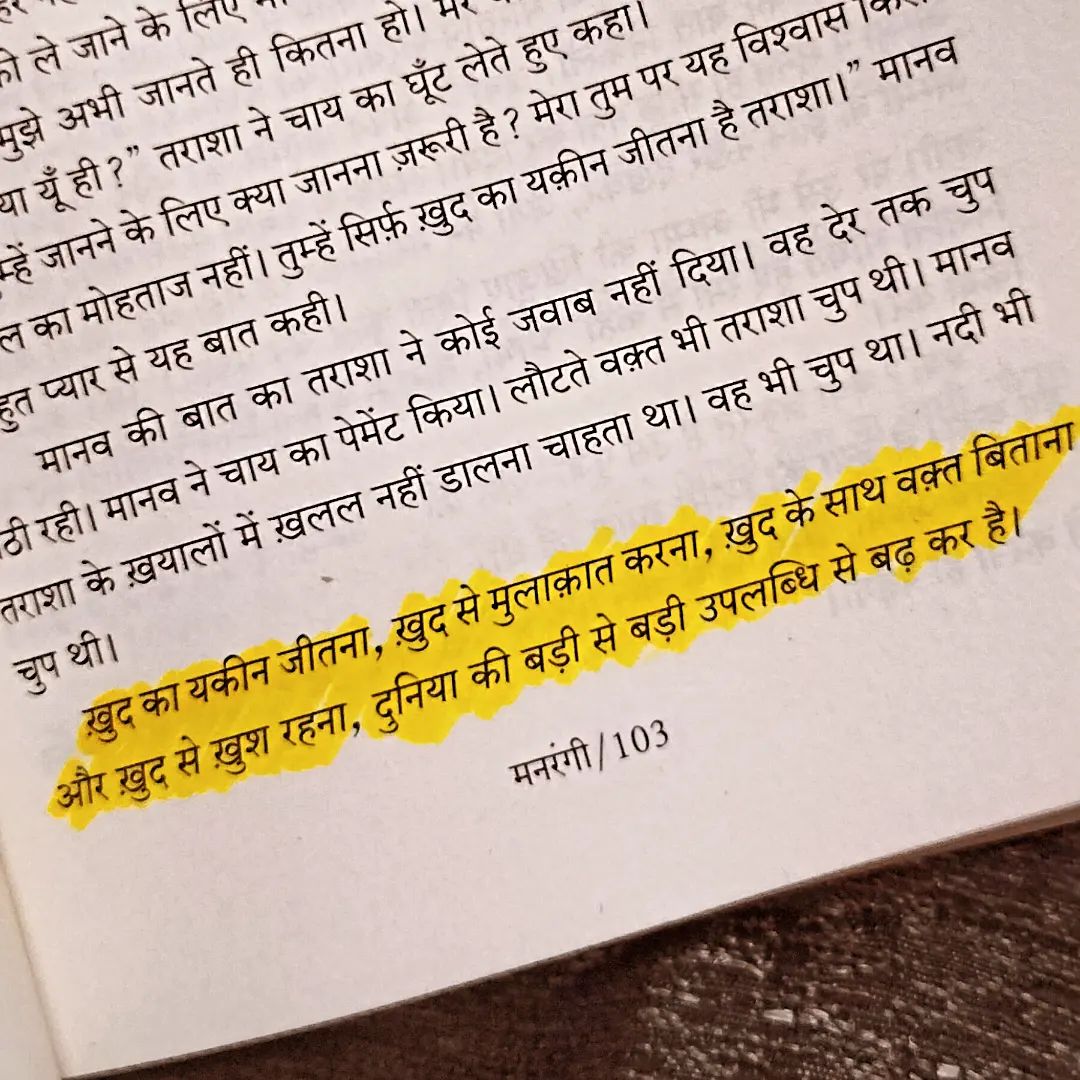 ले जाने के लिए
मुझे अभी जानते ही कितना हो।
यूँ ही?” तराशा ने चाय का घूँट लेते हुए कहा।
जानने के लिए क्या जानना ज़रूरी है? मेरा तुम पर यह विश्वास
का मोहताज नहीं। तुम्हें सिर्फ़ ख़ुद का यक़ीन जीतना है तराशा।” मानव
प्यार से यह बात कही।
मानव की बात का तराशा ने कोई जवाब नहीं दिया। वह देर तक चुप
रही। मानव ने चाय का पेमेंट किया। लौटते वक़्त भी तराशा चुप थी। मानव
तराशा के ख़यालों में ख़लल नहीं डालना चाहता था। वह भी चुप था। नदी भी
चुप थी।
ख़ुद का यकीन जीतना, ख़ुद से मुलाक़ात करना, ख़ुद के साथ वक़्त बिताना
और ख़ुद से ख़ुश रहना, दुनिया की बड़ी से बड़ी उपलब्धि से बढ़ कर है।
मनरंगी/103